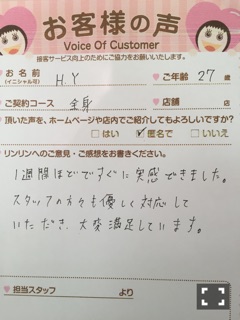 お客様の声
Voice Of Customer
接客サービス向上のためにご協力をお願いいたします。
お名前
(イニシャル可)
H.Y
ご年齢 27 歳
ご契約コース 全身
店舗 店
頂いた声を、ホームページや店内でご紹介してもよろしいですか?
はい 匿名で いいえ
リンリンへのご意見・ご感想をお書きください。
1週間ほどですぐに実感できました。
スタッフの方々も優しく対応して
いただき、大変満足しています。
担当スタッフ より